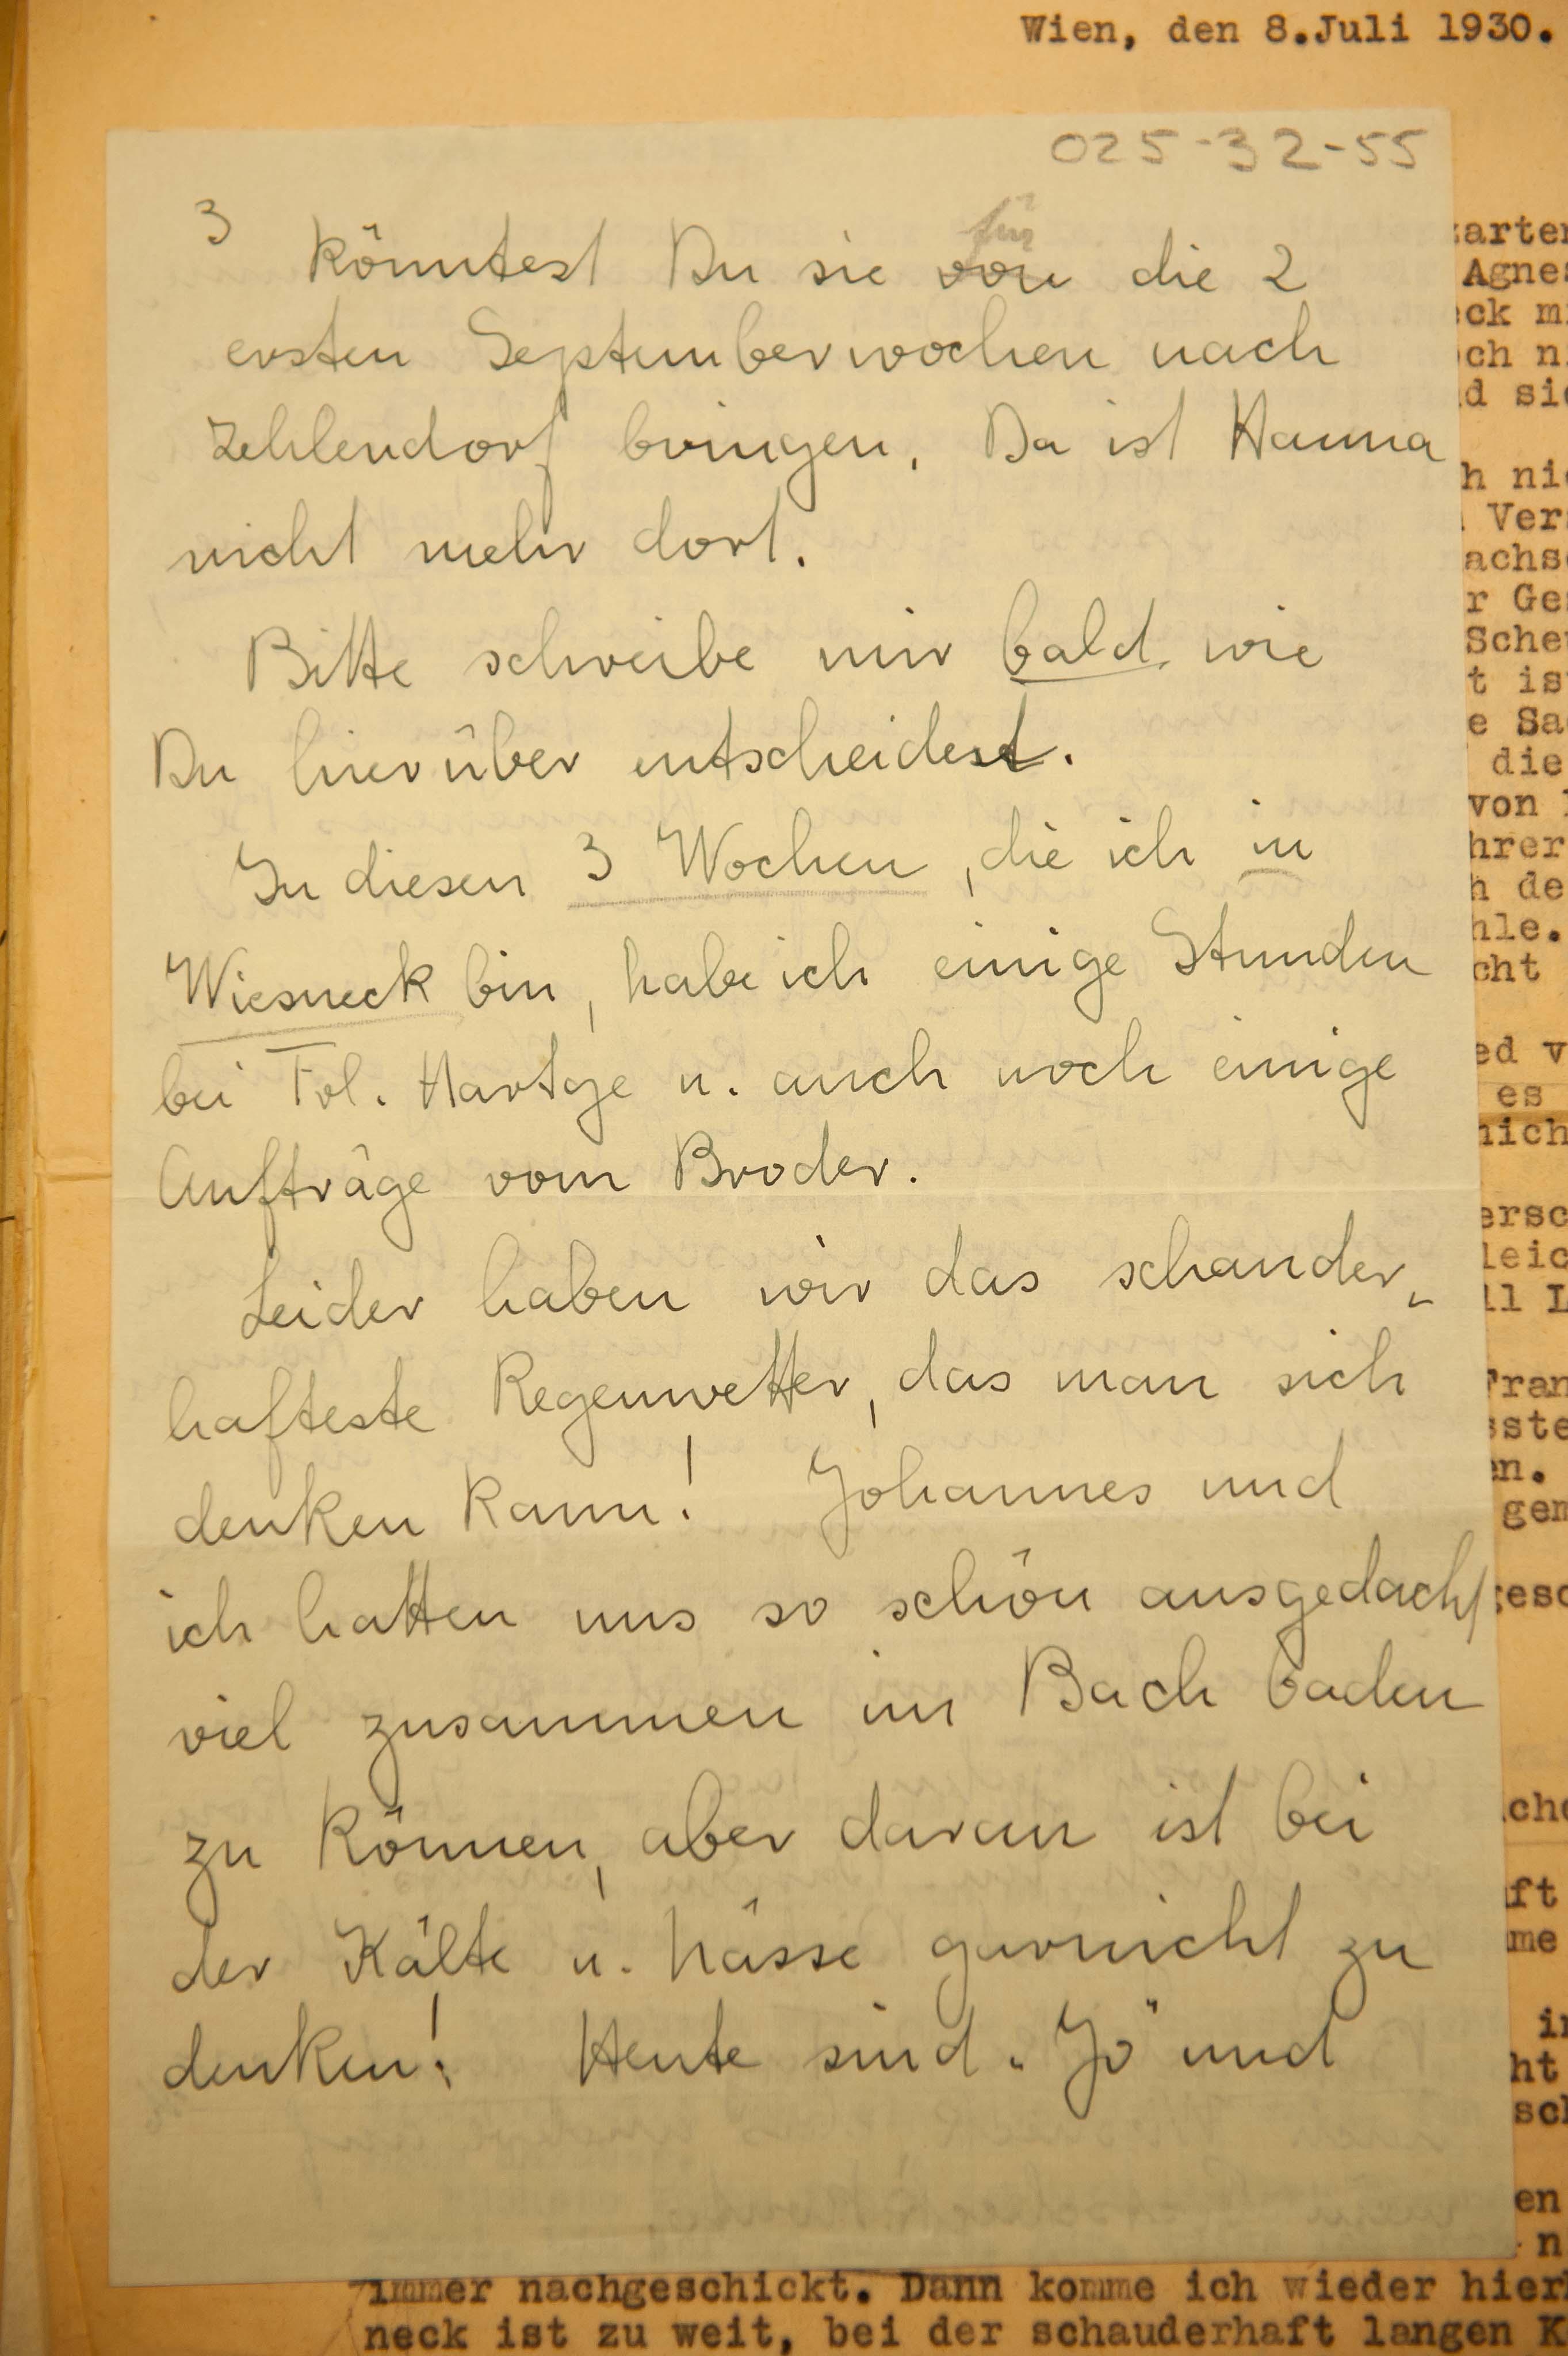 Wien, den 8.Juli 1930.
025-32-55
3
für
Könntest Du sie von die 2
ersten Septemberwochen nach
Zehlendorf bringen. Da ist Hanna
nicht mehr dort.
Bitte schreibe mir bald, wie
Du hierüber entscheidest.
In diesen 3 Wochen, die ich in
Wiesneck bin, habe ich einige Stunden
bei Frl. Hartge u. auch noch einige
Aufträge vom Broder.
Leider haben wir das schauder„
hafteste Regenwetter, das man sich
denken kann! Johannes und
ich hatten uns so schön ausgedacht
viel zusammen im Bach baden
zu können, aber daran ist bei
der Kälte u. Nässe garnicht zu
denken! Heute sind „Jo" und
immer nachgeschickt. Dann komme ich wieder hierh
neck ist zu weit, bei der schauderhaft langen K
zarten
Agnes
eck mi
och n
d sie
h nie
Vers
achse
r Ges
Scheu
t is
e Sa
die
von
hrer
h de
hle.
cht
ed v
es
nich
ersc
leic
ll L
Fran
sste
en.
gem
gesc
che
ft
me
in
ht
sch
en
n